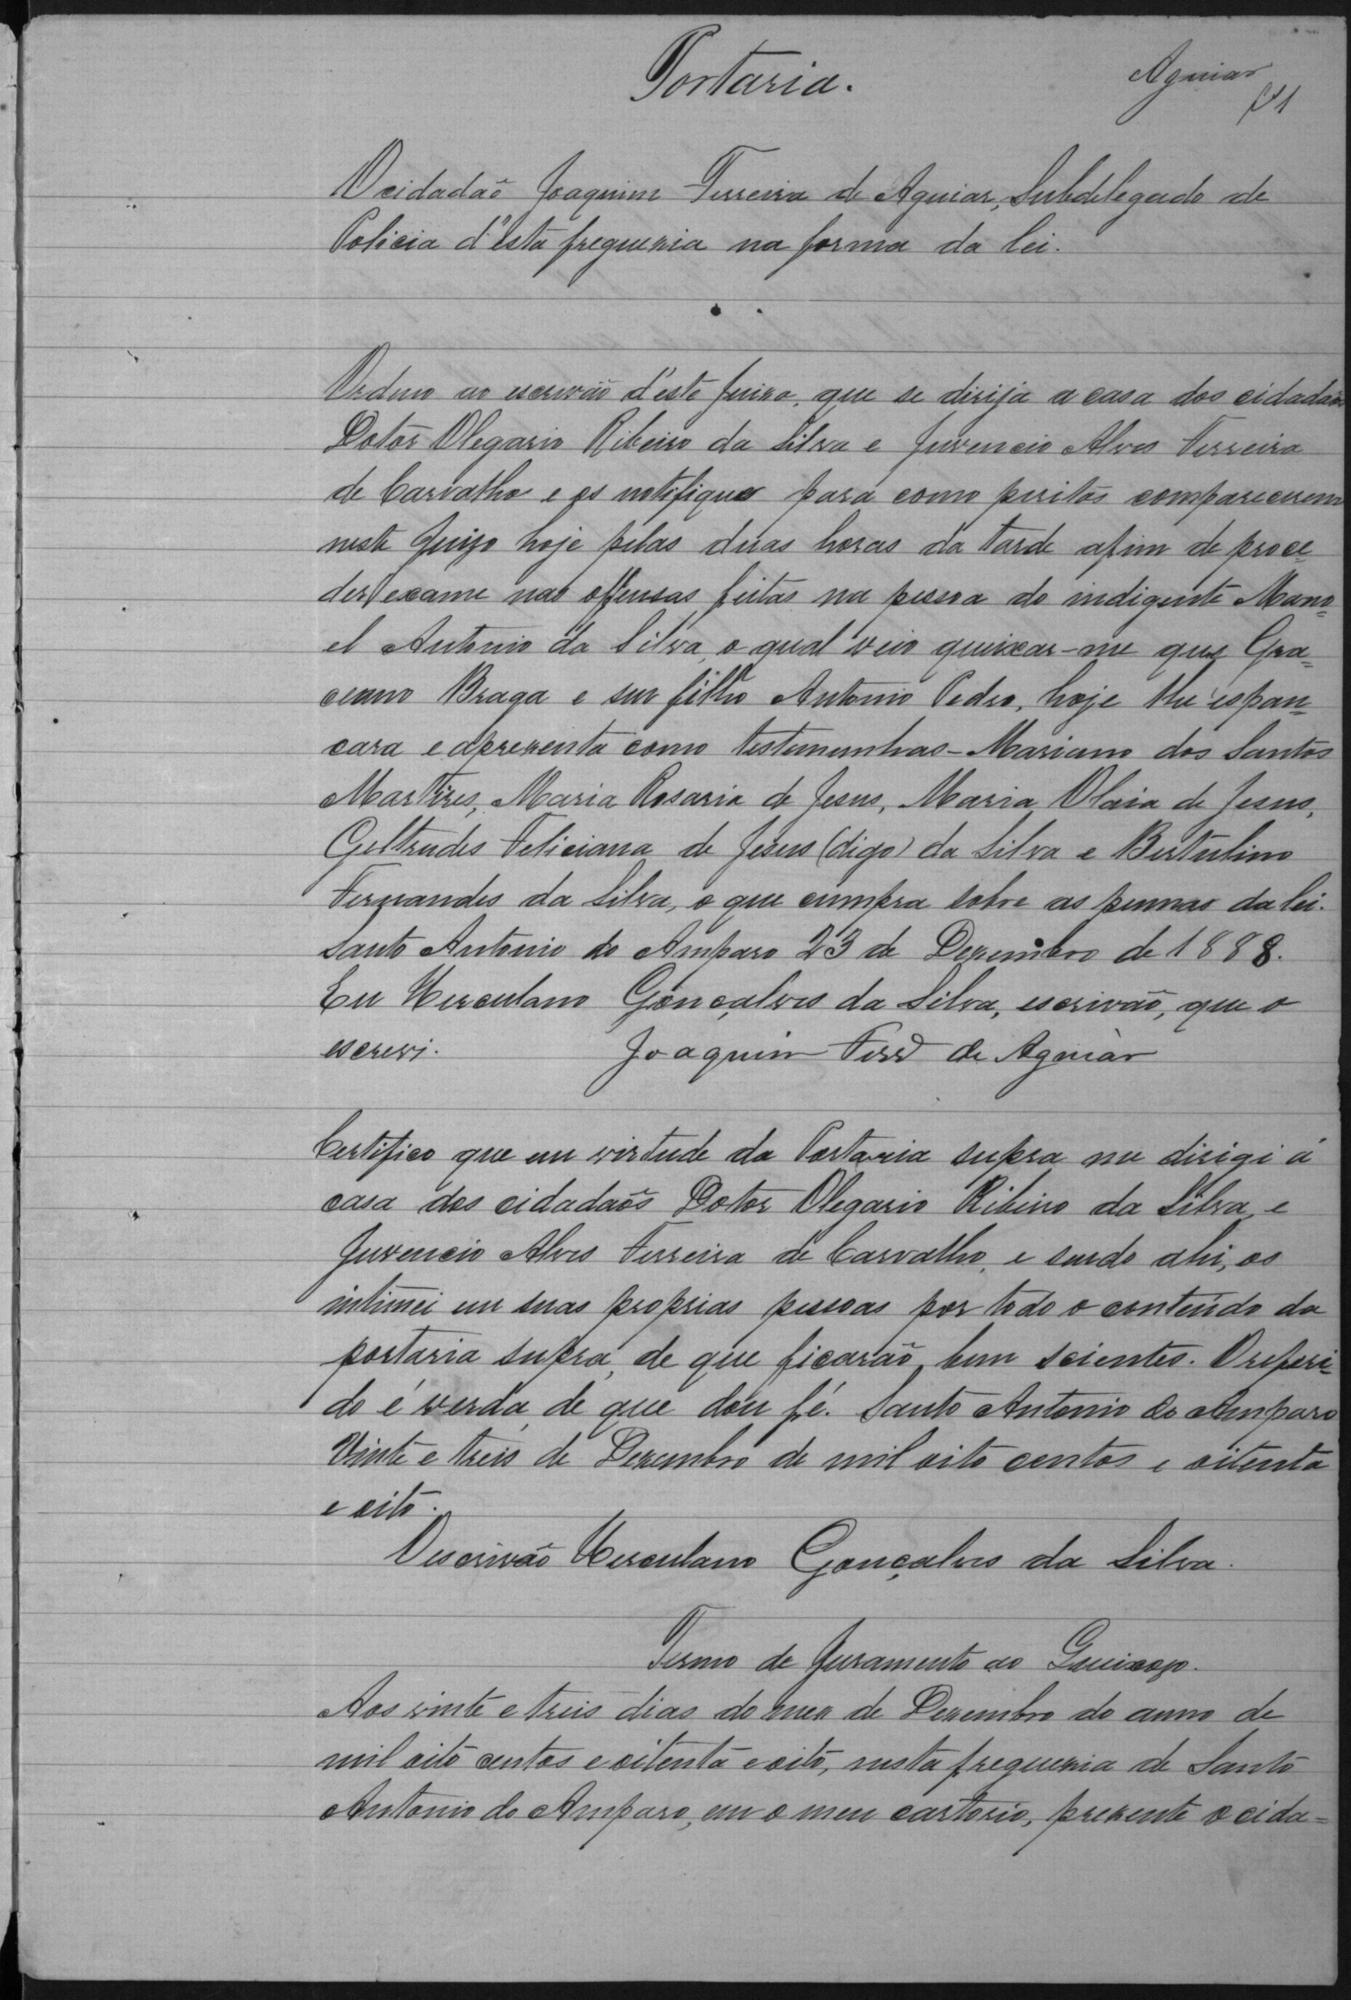 Portaria.
Aguiar
O cidadaõ Joaquim Ferreira de Aguiar, Subdelegado de
Policia d'esta freguezia na forma da lei.
Ordeno ao escrivão d'este Juizo, que se dirija a casa dos cidadaõs
Dotor Olegario Ribeiro da Silva e Juvencio Alves Ferreira
de Carvalho e os notifique para como peritos comparecerem
neste Juizo hoje pelas duas horas da tarde afim de proce=
der exame nas offensas feitas na pessoa do indigente Mano=
el Antonio da Silva, o qual veio queixar-me que Gra=
ciano Braga e seu filho Antonio Pedro, hoje lhe espan=
cara e aprezenta como testemunhas - Mariano dos Santos
Martires, Maria Rosaria de Jesus, Maria Olaia de Jesus,
Geltrudes Feliciana de Jesus (digo) da Silva e Bertulino
Fernandes da Silva, o que cumpra sobre as pennas da lei.
Santo Antonio do Amparo 23 de Dezembro de 1888.
Eu Herculano Gonçalves da Silva, escrivaõ, que o
escrevi. Joaquim Ferrª de Aguiar
Certifico que em virtude da Portaria supra me dirigi á
casa dos cidadaõs Dotor Olegario Ribeiro da Silva e
Juvencio Alves Ferreira de Carvalho, e sendo ahi, os
intimei em suas proprias pessoas por todo o conteúdo da
portaria supra, de que ficaraõ bem scientes. O referi=
do é verda de que dou fé. Santo Antonio do Amparo
Vinte e treis de Dezembro de mil oito centos e oitenta
e oito.
O escrivaõ Herculano Gonçalves da Silva.
Termo de Juramento ao Queixozo.
Aos vinte e treis dias do mez de Dezembro do anno de
mil oito centos e oitenta e oito, nesta freguezia de Santo
Antonio do Amparo, em o meu cartorio, prezente o cida=